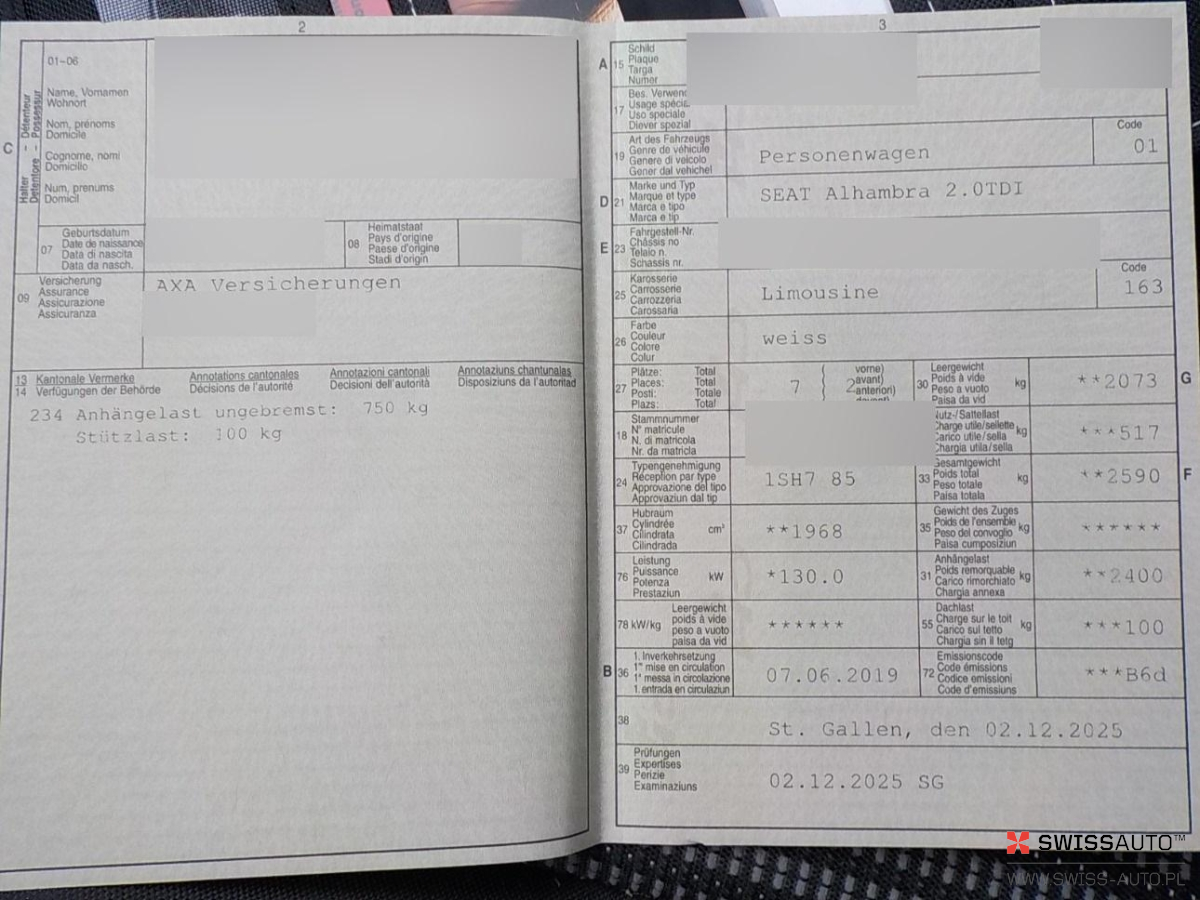 2
01-06
Name, Vornamen
Wohnort
Nom, prénoms
Domicile
Cognome, nomi
Domicilio
Num, prenums
Domicil
C
Halter - Détenteur
Detentore - Possessur
07
Geburtsdatum
Date de naissance
Data di nascita
Data da nasch.
08
Heimatstaat
Pays d'origine
Paese d'origine
Stadi d'origin
09
Versicherung
Assurance
Assicurazione
Assicuranza
AXA Versicherungen
13
14
Kantonale Vermerke
Verfügungen der Behörde
Annotations cantonales
Décisions de l'autorité
Annotazioni cantonali
Decisioni dell'autorità
Annotaziuns chantunalas
Disposiziuns da l'autoritad
234 Anhängelast ungebremst: 750 kg
Stützlast: 100 kg
3
A
15
Schild
Plaque
Targa
Numer
17
Bes.
Usage
Uso speciale
Diever spezial
19
Art des Fahrzeugs
Genre de véhicule
Genere di veicolo
Gener dal vehichel
Personenwagen
Code
01
D
21
Marke und Typ
Marque et type
Marca e tipo
Marca e tip
SEAT Alhambra 2.0TDI
E
23
Fahrgestell-Nr.
Châssis no
Telaio n.
Schassis nr.
25
Karosserie
Carrosserie
Carrozzeria
Carossaria
Limousine
Code
163
26
Farbe
Couleur
Colore
Colur
weiss
27
Plätze: Total
Places: Total
Posti: Totale
Plazs: Total
7
( vorne)
2 avant)
( anteriori)
30
Leergewicht
Poids à vide
Peso a vuoto
Paisa da vid
kg
**2073
G
18
Stammnummer
N° matricule
N. di matricola
Nr. da matricla
Nutz-/Sattellast
Charge utile/sellette
Carico utile/sella
Chargia utila/sella
kg
***517
24
Typengenehmigung
Réception par type
Approvazione del tipo
Approvaziun dal tip
1SH7 85
33
Gesamtgewicht
Poids total
Peso totale
Paisa totala
kg
**2590
F
37
Hubraum
Cylindrée
Cilindrata
Cilindrada
cm³
**1968
35
Gewicht des Zuges
Poids de l'ensemble
Peso del convoglio
Paisa cumposiziun
kg
******
76
Leistung
Puissance
Potenza
Prestaziun
kW
*130.0
31
Anhängelast
Poids remorquable
Carico rimorchiato
Chargia annexa
kg
**2400
78 kW/kg
Leergewicht
poids à vide
peso a vuoto
paisa da vid
******
55
Dachlast
Charge sur le toit
Carico sul tetto
Chargia sin il tetg
kg
***100
B
36
1. Inverkehrsetzung
1re mise en circulation
1a messa in circolazione
1. entrada en circulaziun
07.06.2019
72
Emissionscode
Code émissions
Codice emissioni
Code d'emissiuns
***B6d
38
St. Gallen, den 02.12.2025
39
Prüfungen
Expertises
Perizie
Examinaziuns
02.12.2025 SG
SWISSAUTO™
WWW.SWISS-AUTO.PL